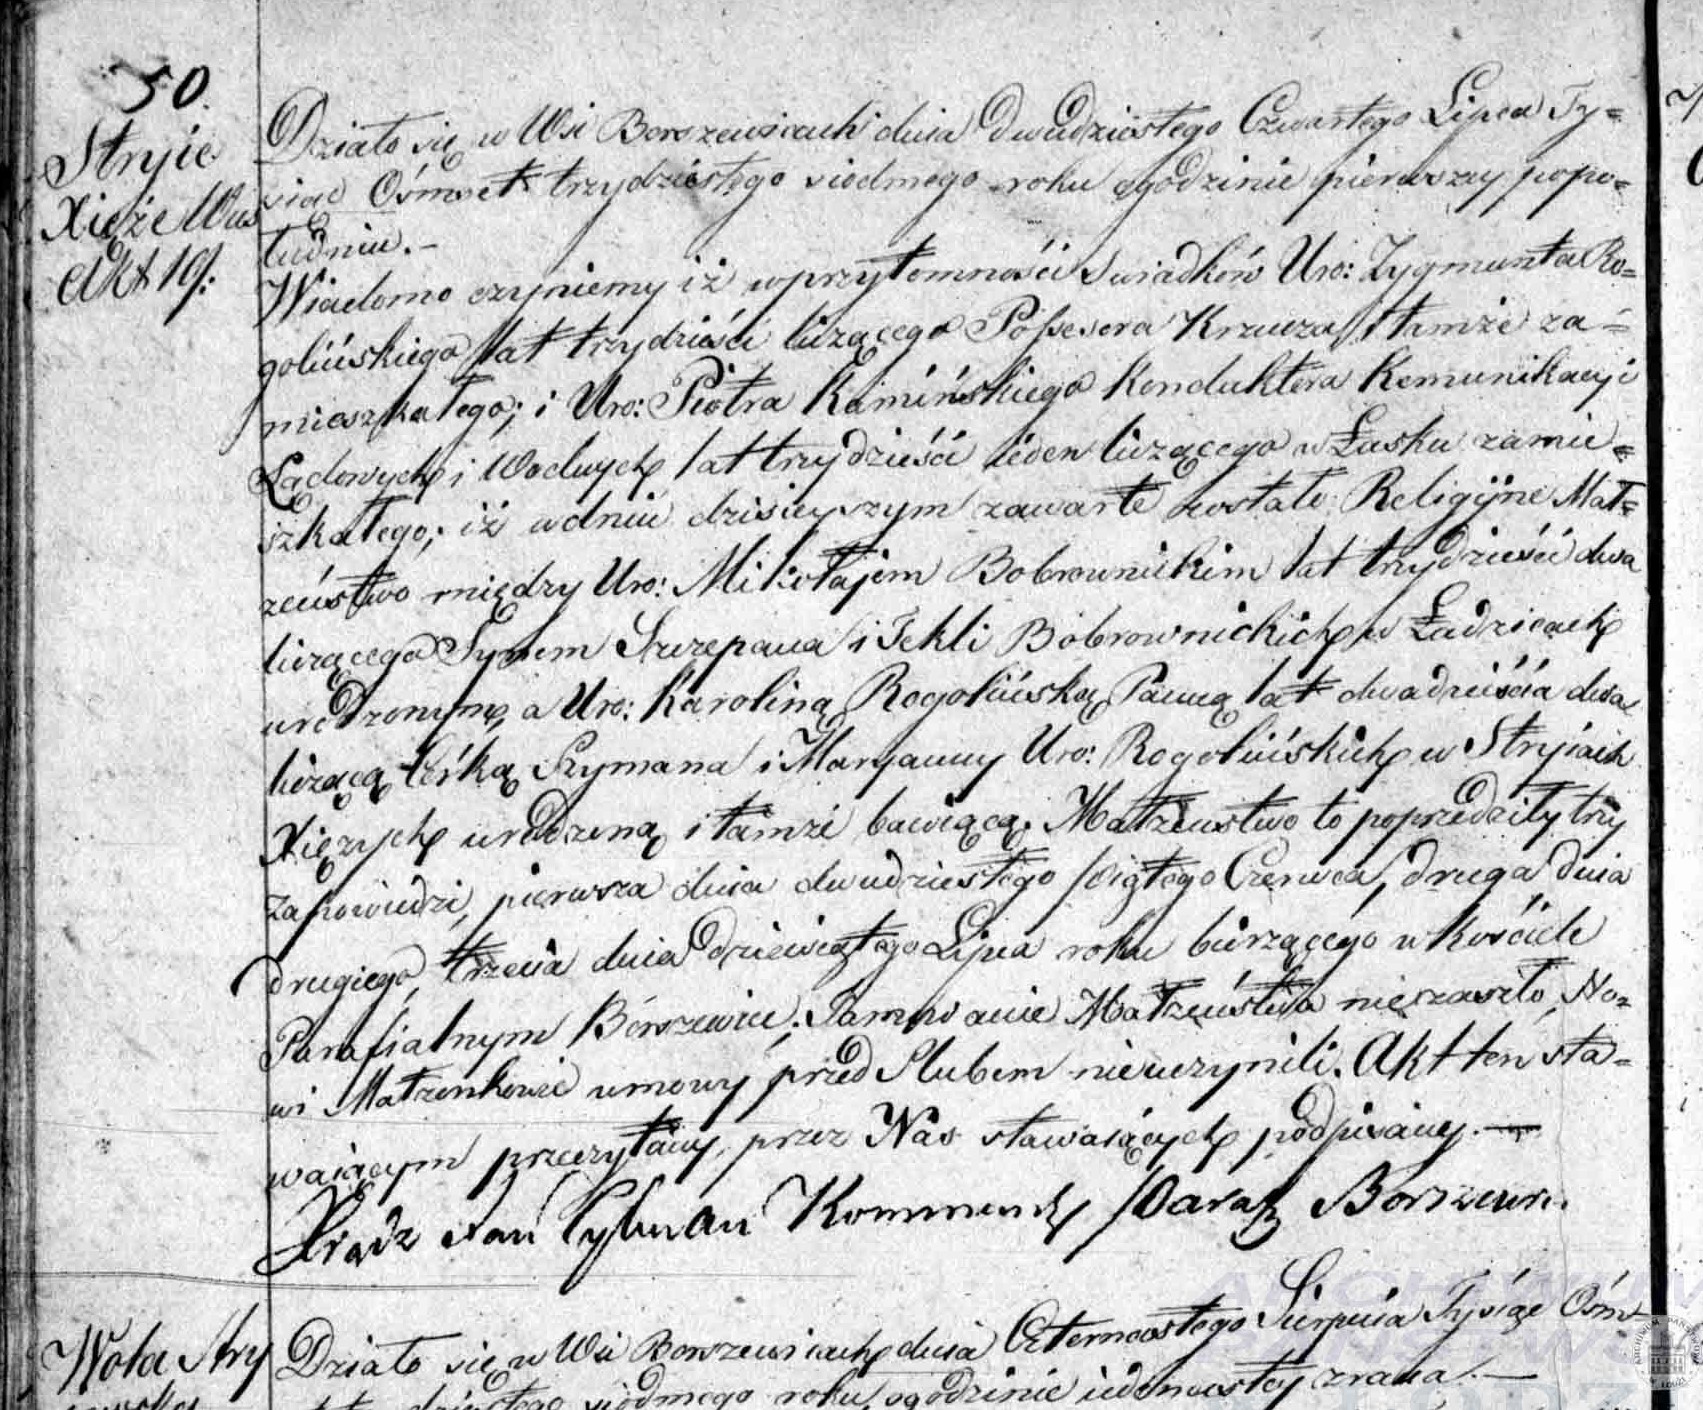 50.
Stryie
Xięże Wieś
Akt 19:
Działo się w Wsi Borszewicach dnia Dwudziestego Czwartego Lipca Ty=
siąc Ośmset trzydziestego siodmego roku ogodzinie pierwszey popo=
łudniu.–
Wiadomo czyniemy iż wprzytomności Swiadków Uro: Zygmunta Ro=
golińskiego lat trzydzieści liczącego Possesora Krzucza i tamże za=
mieszkałego; i Uro: Piotra Kamińskiego Konduktora Komunikacyi
Lądowych i Wodnych lat trzydzieści ieden liczącego w Łasku zamie=
szkałego; iż wdniu dzisieyszym zawarte zostało Religijne Mał=
zeństwo między Uro: Mikołajem Bobrownickim lat trzydzieści dwa
liczącego Synem Szczepana i Tekli Bobrownickich w Ładzicach
urodzonym, a Uro: Karoliną Rogolińską Panną lat dwadzieścia dwa
liczącą Córką Szymana i Maryanny Uro: Rogolińskich w Stryiach
Xięzych urodzoną i tamże bawiącą. Małżeństwo to poprzedziły try
Zapowiedzi, pierwsza dnia dwudziestego piątego Czerwca, druga dnia
drugiego, trzecia dnia dziewiątego Lipca roku bieżącego w Kościele
Parafialnym Borszewice; Tamowanie Małżeństwa nie zaszło, No=
wi Małzonkowie umowy przed Slubem nieuczynili. Akt ten sta=
waiącym przeczytany, przez Nas stawaiących podpisany.—
Xiądz Jan Kommend Paraf Borszewic.
Wola Stry
Działo się w Wsi Borszewicach dnia Czternastego Sierpnia Tysiąc Ośm
siodmego roku ogodzinie iedenastey zrana.—